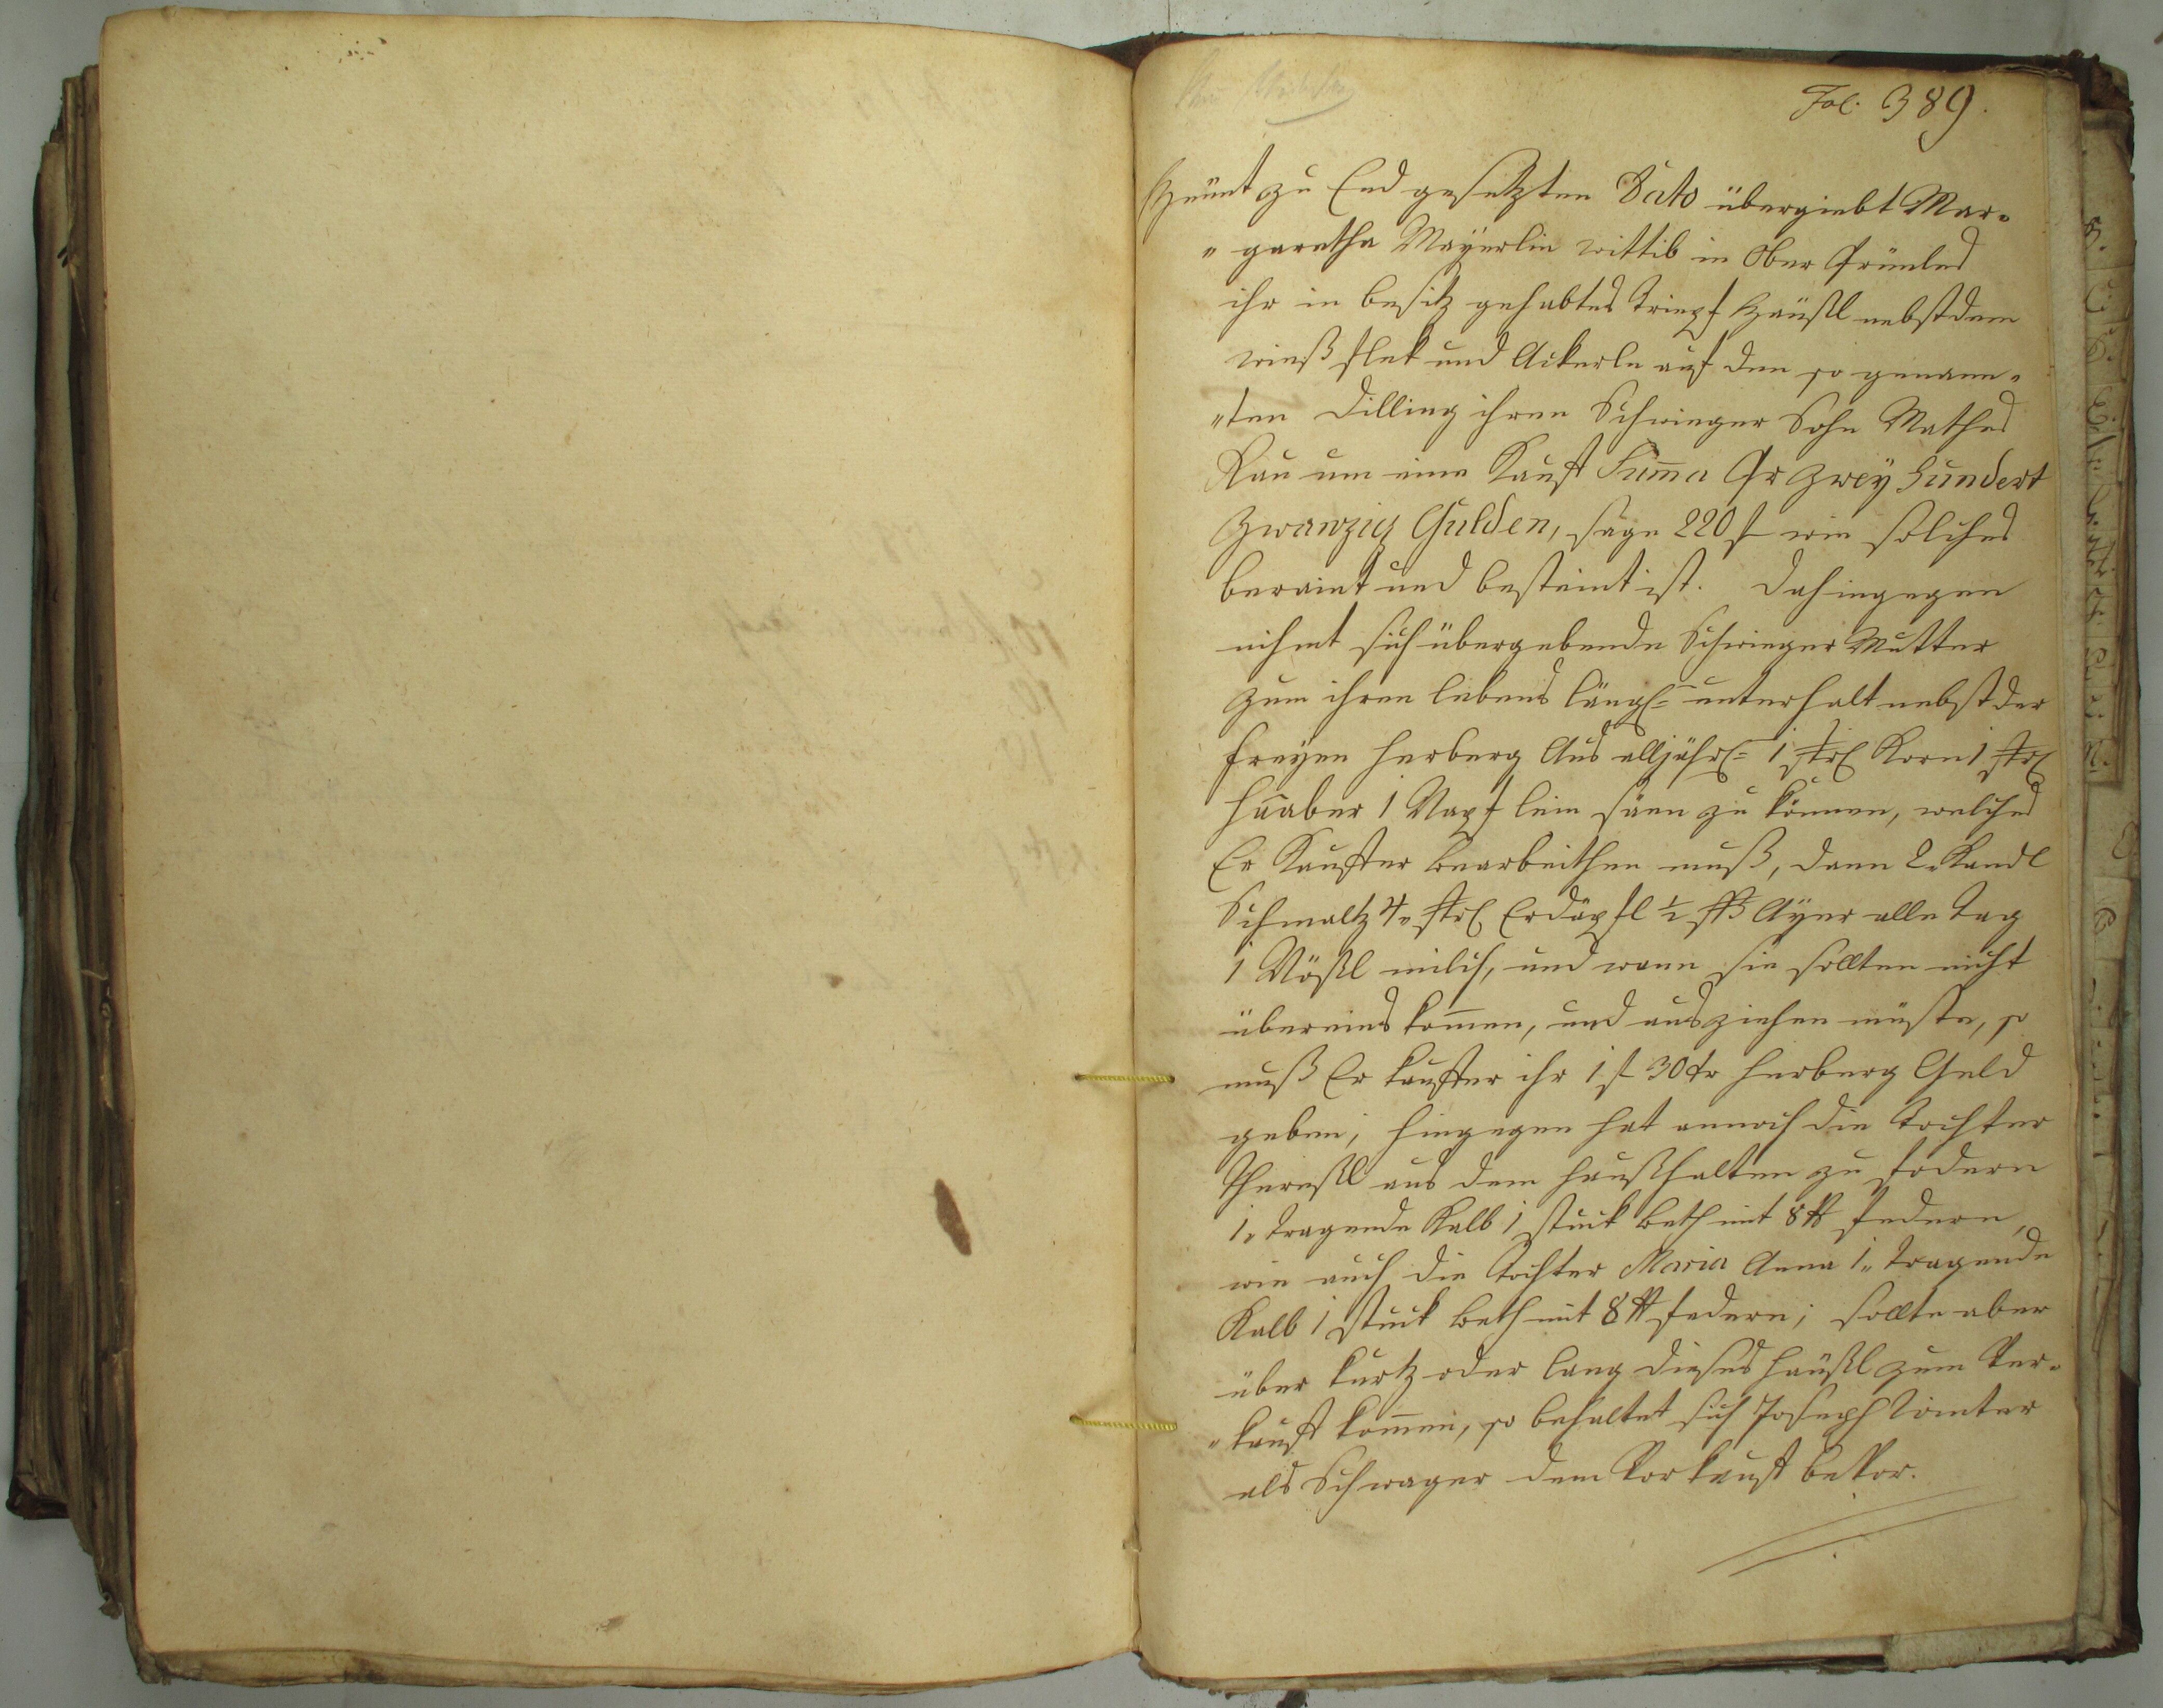 Fol. 389.
Heünt zu End gesetzten Dato übergiebt Mar„
„garetha Mayerlin wittib in Ober Grünled
ihr in besitz gehabtes Tripf Häußl nebstdem
wießflek und Ackerle auf den so genann„
„ten Dilling ihren Schwieger Sohn Mathes
Rau um eine Kauff Suma Pr Zwey Hundert
Zwanzig Gulden, sage 220 f wie solches
beraint und besteint ist. Dahingegen
nihmt sich übergebende Schwieger Mutter
zum ihren lebens längl= unterhalt nebst der
freyen herberg Aus alljährl= 1 strl Korn 1 strl
Haaber 1 Napf lein säen zu können, welches
Er Kauffer bearbeithen muß, dann 2 Kandl
Schmaltz 4„ strl Erdäpfl ½ ßß Ayer alle Tag
1 Nößl milch, und wann sie sollten nicht
übereins kommen, und ausziehen müste, so
muß Er kauffer ihr 1 f 30 xr herberg Geld
geben, hingegen hat annoch die Tochter
Thereßl aus dem haußhalten zu fodern
1„ tragende Kalb 1 stuck beth mit 8 ℔ federn,
wie auch die Tochter Maria Anna 1„ tragende
Kalb 1 stuck beth mit 8 ℔ federn; sollte aber
über kurtz oder lang dieses häußl zum Ver„
„kauff kommen, so behaltet sich Joseph Winter
als Schwager dem Vorkauff bevor.